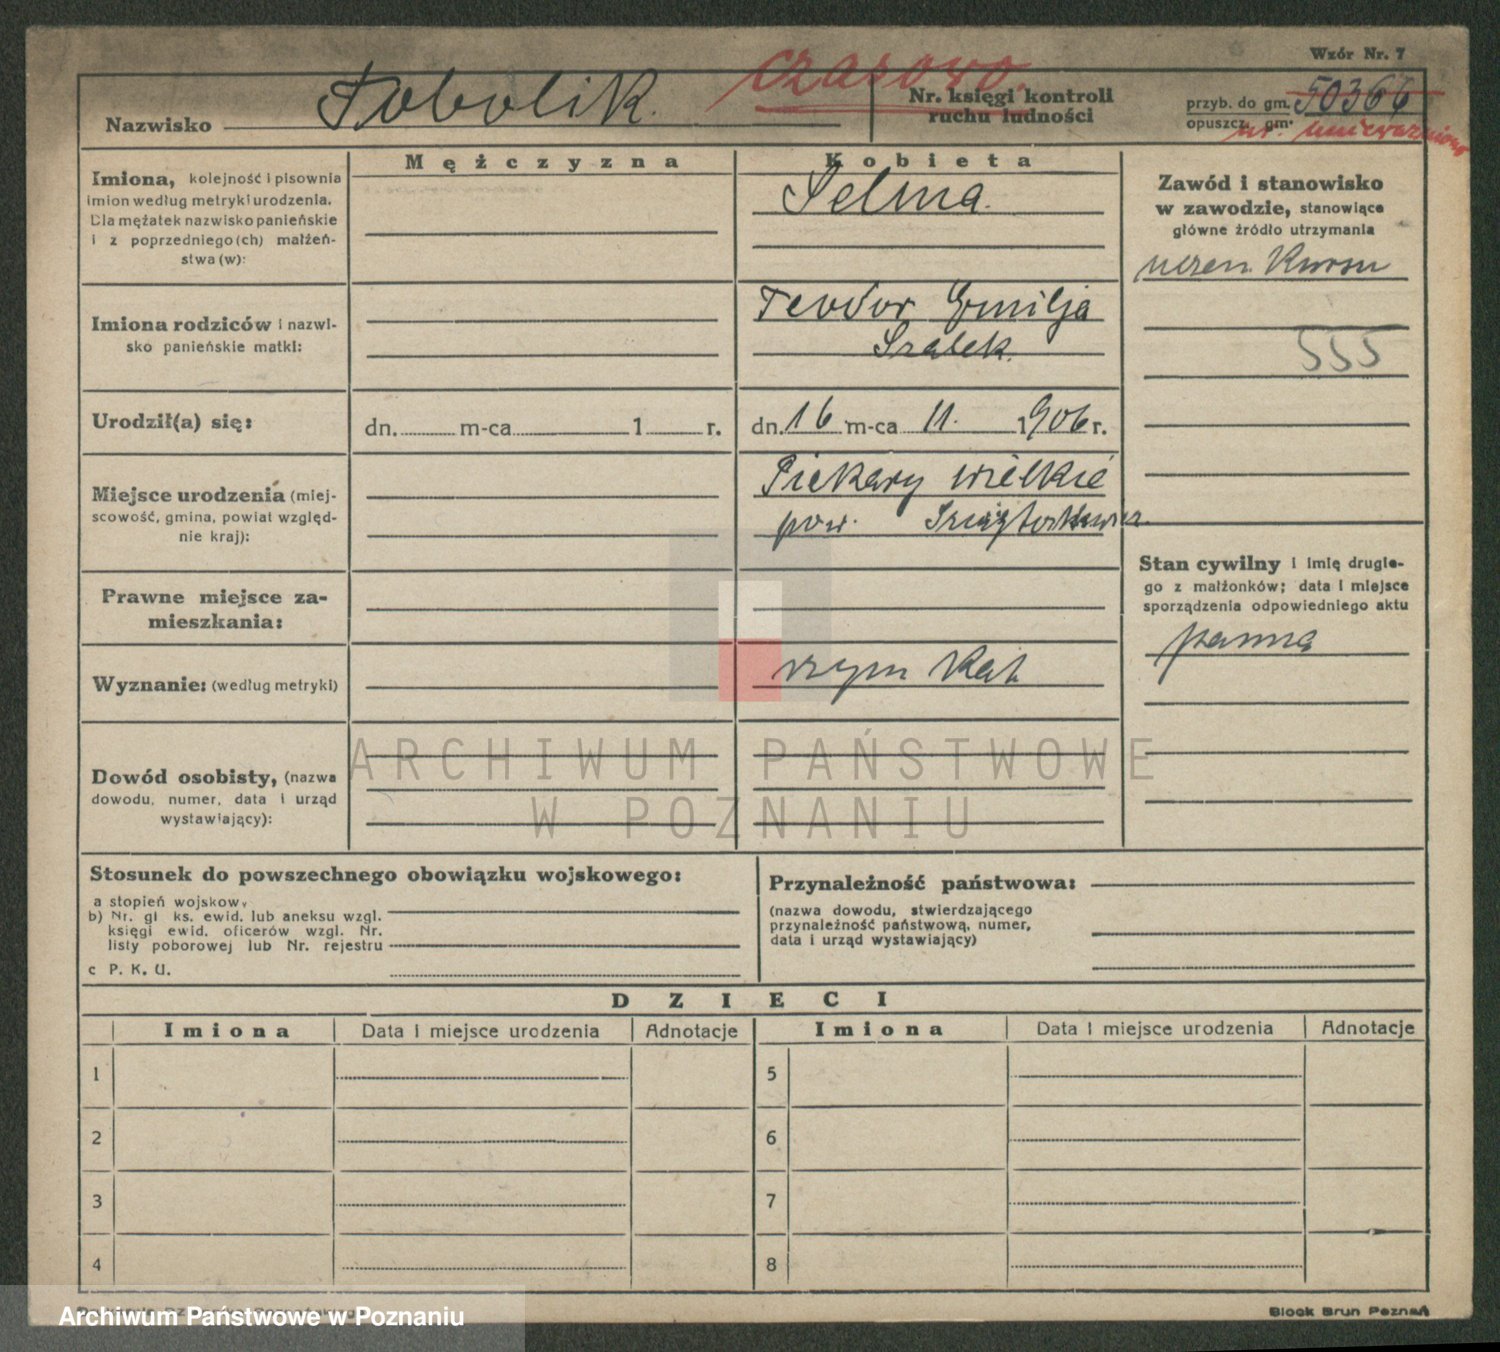 Wzór Nr. 7
czasowo.
Nazwisko Tobolik.
Nr. księgi kontroli
ruchu ludności
przyb. do gm. 50366
opuszcz. gm.
nr. unieważniono
Mężczyzna
Kobieta
Imiona, kolejność i pisownia
imion według metryki urodzenia.
Dla mężatek nazwisko panieńskie
i z poprzedniego(ch) małżeń-
stwa(w):
Selma.
Zawód i stanowisko
w zawodzie, stanowiące
główne źródło utrzymania
uczen. Kursu
555
Imiona rodziców i nazwi-
sko panieńskie matki:
Teodor Emilja
Szalek.
Urodził(a) się:
dn. m-ca 1 r.
dn. 16 m-ca 11. 1906 r.
Miejsce urodzenia (miej-
scowość, gmina, powiat względ-
nie kraj):
Piekary wielkie
pow.
Stan cywilny i imię drugie-
go z małżonków; data i miejsce
sporządzenia odpowiedniego aktu
panna
Prawne miejsce za-
mieszkania:
Wyznanie: (według metryki)
rzym Kat
Dowód osobisty, (nazwa
dowodu, numer, data i urząd
wystawiający):
ARCHIWUM PAŃSTWOWE
W POZNANIU
Stosunek do powszechnego obowiązku wojskowego:
a stopień wojskow.
b) Nr. gl ks. ewid. lub aneksu wzgl.
księgi ewid. oficerów wzgl. Nr.
listy poborowej lub Nr. rejestru
c P. K. U.
Przynależność państwowa:
(nazwa dowodu, stwierdzającego
przynależność państwową, numer,
data i urząd wystawiający)
DZIECI
Imiona Data i miejsce urodzenia Adnotacje Imiona Data i miejsce urodzenia Adnotacje
1 5
2 6
3 7
4 8
Archiwum Państwowe w Poznaniu
Block Brun Poznań